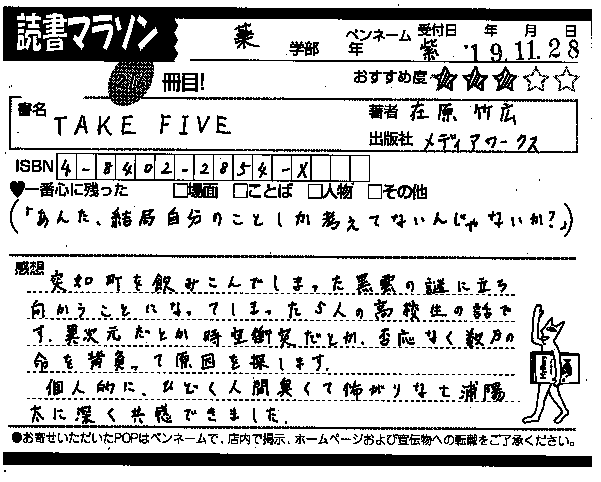 読書マラソン
薬 学部 年 ペンネーム 紫 受付日 年 月 日 '19.11.28
冊目! おすすめ度 ★★★☆☆
書名 TAKE FIVE
著者 在原 竹広
出版社 メディアワークス
ISBN 4-8402-2854-X
♥一番心に残った □場面 □ことば □人物 □その他
(「あんた、結局自分のことしか考えてないんじゃないか?」)
感想
突如町を飲みこんでしまった黒雲の謎に立ち
向かうことになってしまった5人の高校生の話で
す。異次元だとか時空衝突だとか、否応なく数万の
命を背負って原因を探します。
個人的に、ひどく人間臭くて怖がりな七浦陽
太に深く共感できました。
●お寄せいただいたPOPはペンネームで、店内で掲示、ホームページおよび宣伝物への転載をご了承ください。